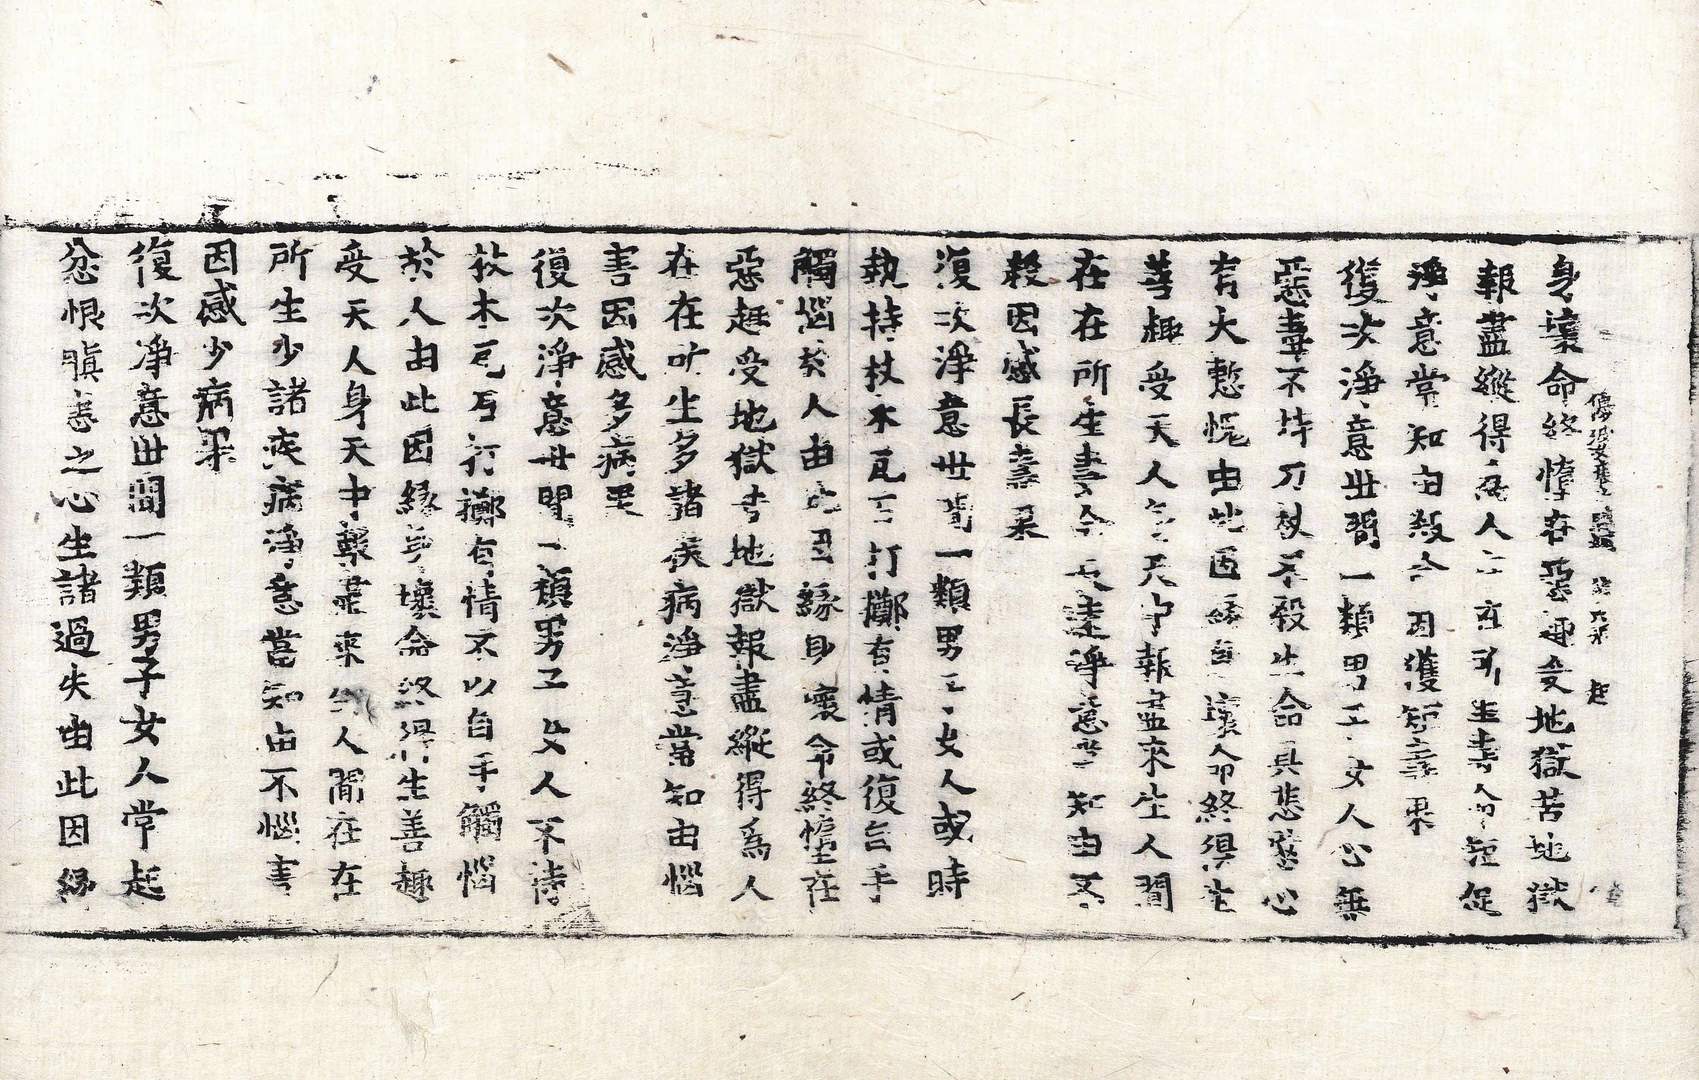 身壞命終墮在惡趣受地獄苦地獄
報盡縱得爲人在在所生壽命短促
淨意當知由殺命因獲短壽果
復次淨意世間一類男子女人心無
惡毒不持刀杖不殺生命具悲愍心
有大慙愧由此因緣身壞命終得生
善趣受天人身天中報盡來生人間
在在所生壽命長遠淨意當知由不
殺因感長壽果
復次淨意世間一類男子女人或時
執持杖木瓦石打擲有情或復自手
觸惱於人由此因緣身壞命終墮在
惡趣受地獄苦地獄報盡縱得爲人
在在所生多諸疾病淨意當知由惱
害因感多病果
復次淨意世間一類男子女人不持
杖木瓦石打擲有情不以自手觸惱
於人由此因緣身壞命終得生善趣
受天人身天中報盡來生人間在在
所生少諸疾病淨意當知由不惱害
因感少病果
復次淨意世間一類男子女人常起
忿恨瞋恚之心生諸過失由此因緣